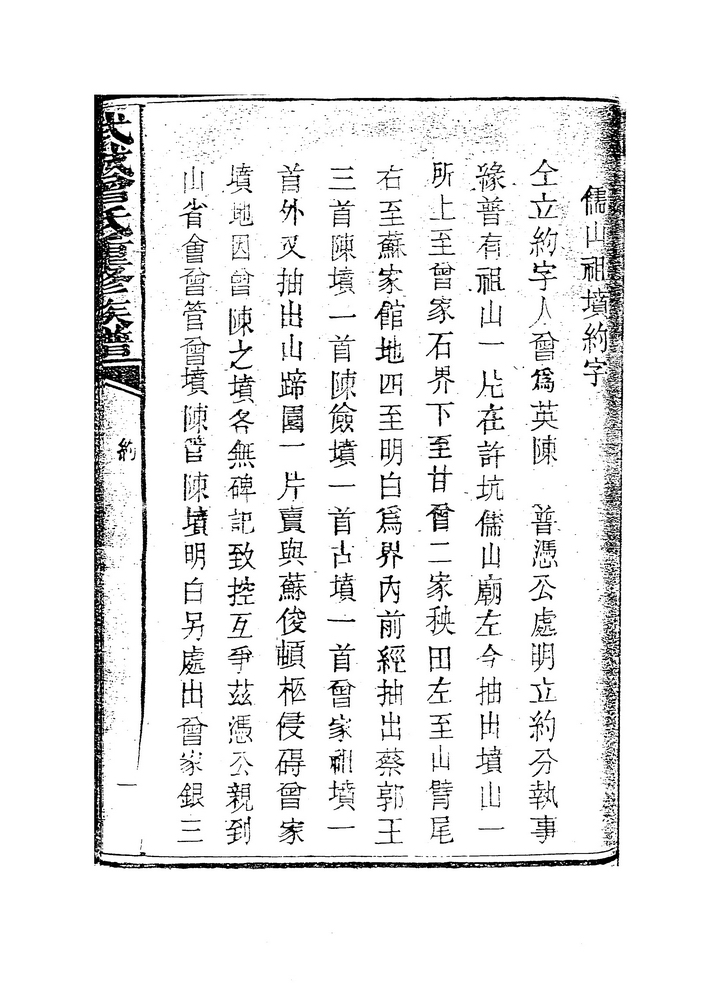 儒山祖墳約字
仝立約字人曾爲英陳　普憑公處明立約分執事
緣普有祖山一片在許坑儒山廟左今抽出墳山一
所上至曾家石界下至甘曾二家秧田左至山臂尾
右至蘇家館地四至明白爲界內前經抽出蔡郭王
三首陳墳一首陳儉墳一首古墳一首曾家祖墳一
首外又抽出山蹄園一片賣與蘇俊頓柩侵碍曾家
墳地因曾陳之墳各無碑記致控互爭茲憑公親到
山省會曾管曾墳陳管陳墳明白另處出曾家銀三
武城曾氏重修族譜
約
一